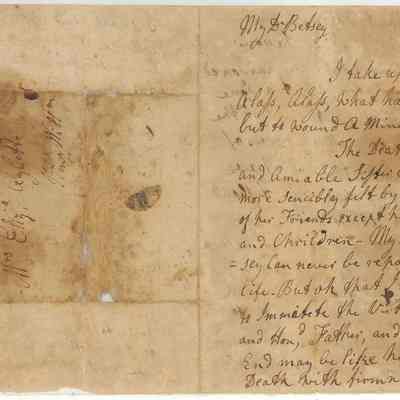 My Dr Betsey
I take up
Alass, Alass, what ha
but to wound A Mind
The Deat
and Amiable Sister
more sencibly felt by
of her Friends except h
and Chrildren - My
=sey Can never be repa
life - But oh that I
to Immitate the Vir
and Hond Father, and
End may be like he
Death with firmn
Mrs Eliza